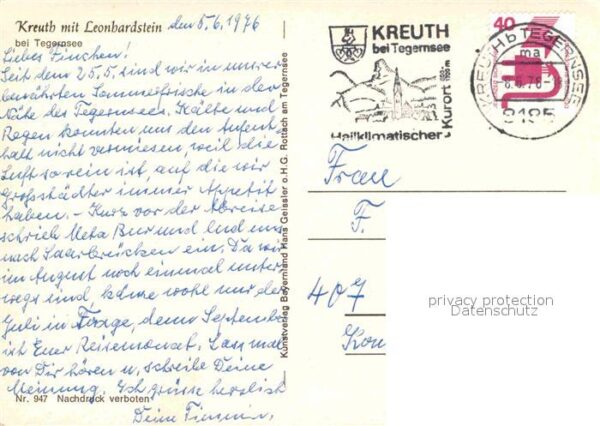 Kreuth mit Leonhardstein den 5.6.1976
bei Tegernsee
Liebes Finchen!
Seit dem 25.5. sind wir in unsrer
bewährten Sommerfrische in der
Nähe des Tegernsees. Kälte und
Regen konnten uns den Aufent-
halt nicht vermiesen, weil die
Luft so rein ist, auf die wir
Großstädter immer Appetit
haben. - Kurz vor der Abreise
schrieb Meta Bur und lud uns
nach Saarbrücken ein. Da wir
im August noch einmal unter
wegs sind, käme wohl nur der
Juli in Frage, denn September
ist Euer Reisemonat. Lass mal
von Dir hören u. schreibe Deine
Meinung. Ich grüsse herzlich
Nr. 947 Nachdruck verboten
Deine
Kunstverlag Bayernland Hans Geissler o.H.G. Rottach am Tegernsee
KREUTH
bei Tegernsee
Heilklimatischer Kurort
40
KREUTH b TEGERNSEE
ma
6.6.76
8185
Frau
F.
407
privacy protection
Datenschutz